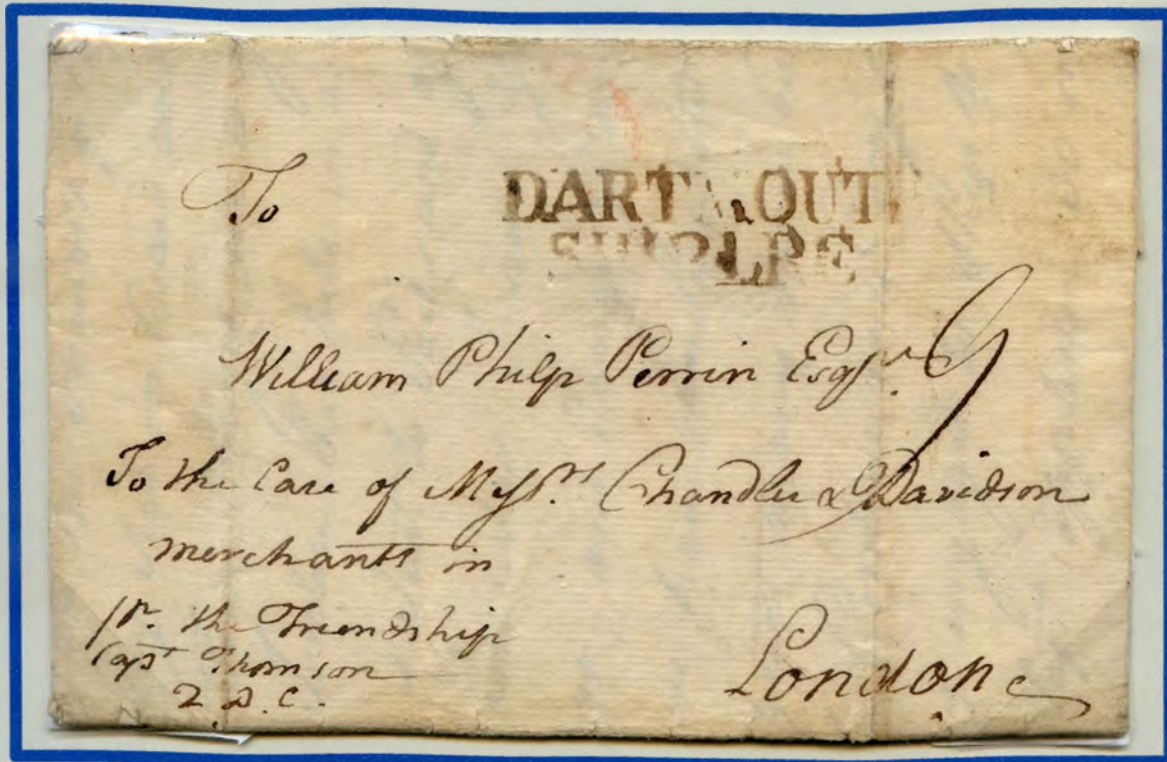 To
DARTMOUTH
SHIP LRE
William Philp Perrin Esqr. 9
To the Care of Messrs. Chandler & Davidson
merchants in
pr. the Friendship
Capt Thomson
Q.D.C.
London